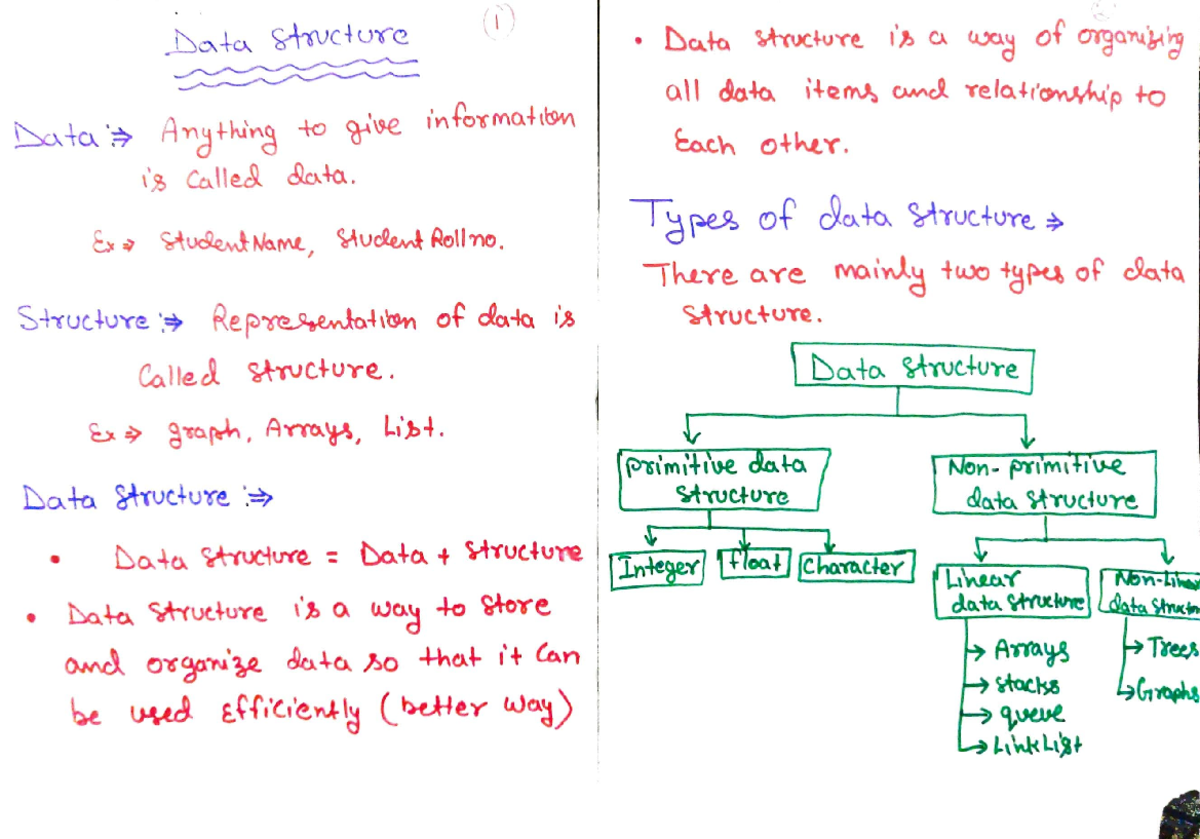 Data Structure
1
Data :⇒ Anything to give information
is Called data.
Ex ⇒ Student Name, Student Roll no.
Structure :⇒ Representation of data is
Called structure.
Ex ⇒ graph, Arrays, List.
Data Structure :⇒
• Data Structure = Data + Structure
• Data Structure is a way to Store
and organize data so that it Can
be used Efficiently (better way)
• Data structure is a way of organizing
all data items and relationship to
Each other.
Types of data Structure ⇒
There are mainly two types of data
Structure.
Data Structure
primitive data
structure
Non-primitive
data structure
Integer
float
Character
Linear
data structure
Non-Linea
data Structu
→ Arrays
→ stacks
→ queue
→ Link List
→ Trees
→ Graphs